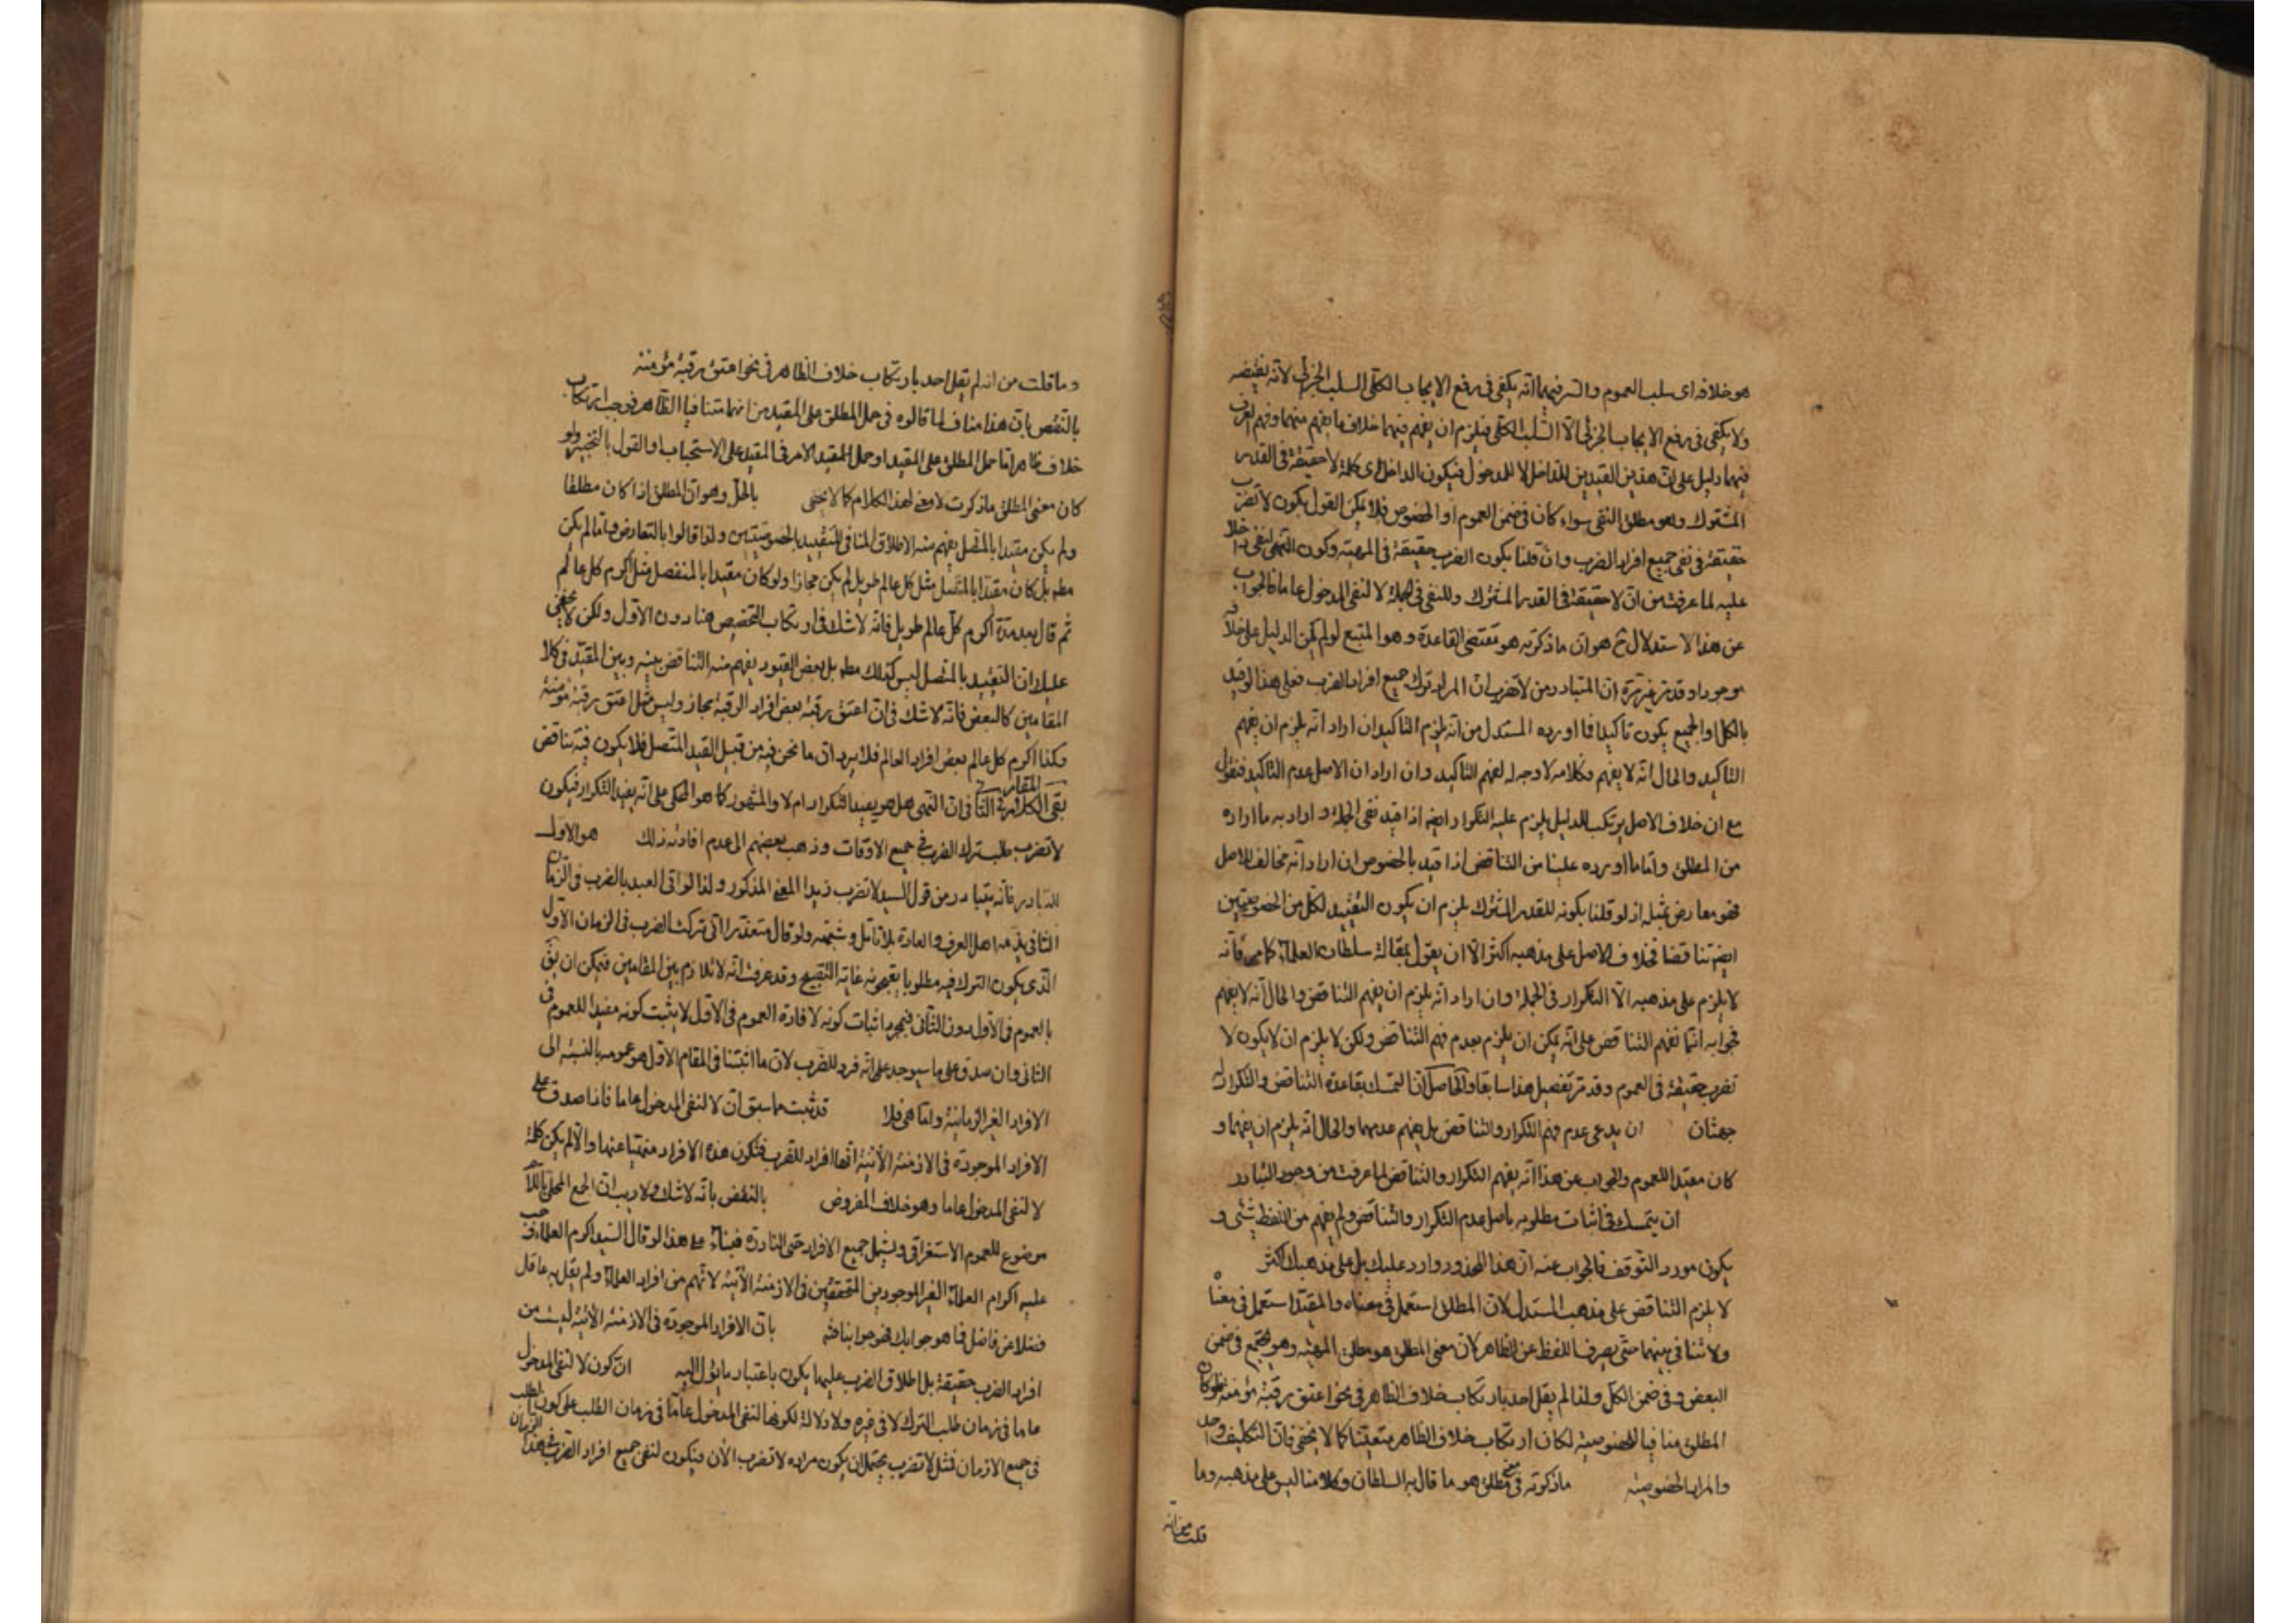 هو خلافه اى سلب العموم والسر فيهما انه يكفى فى رفع الايجاب الكلى السلب الجزئى لانه نقيضه
ولا يكفى فى رفع الايجاب الجزئى الا السلب الكلى فيلزم ان يفهم فيهما خلاف ما يفهم منهما وفهم العرف
فيهما دليل على ان هذين القيدين للداخل لا للمدخول فيكون الداخل اى كلمة لا حقيقة فى القدر
المشترك وهو مطلق النفى سواء كان فى ضمن العموم او الخصوص فلا يمكن القول بكون لا تضرب
حقيقة فى نفى جميع افراد الضرب وان قلنا بكون الضرب حقيقة فى المهية وكون النهى لنفى ما دخلا
عليه لما عرفت من ان لا حقيقة فى القدر المشترك وللنفى فى الجملة لا لنفى المدخول عاما فالجواب
عن هذا الاستدلال ح هو ان ما ذكرته هو مقتضى القاعدة وهو المتبع لو لم يكن الدليل على خلافه
موجودا وقد مر غير مرة ان المتبادر من لا تضرب ان المراد ترك جميع افراد الضرب فعلى هذا لو قيد
بالكل او الجميع يكون تاكيدا فما اورده المستدل من انه يلزم التاكيد ان اراد انه يلزم ان يفهم
التاكيد والحال انه لا يفهم فكلامه لا وجه له لفهم التاكيد وان اراد ان الاصل عدم التاكيد فنقول
مع ان خلاف الاصل يرتكب للدليل يلزم عليه التكرار ايضا اذا قيد نفى الجملة واراد به ما اراده
من المطلق واما ما اورده علينا من التناقض اذا قيد بالخصوص ان اراد انه مخالف للاصل
فهو معارض بمثله اذ لو قلنا بكونه للقدر المشترك يلزم ان يكون التقييد لكل من الخصوصيتين
ايضا تناقضا فخلاف الاصل على مذهبه اكثر الا ان يقول بمقالة سلطان العلماء كما مر فانه
لا يلزم على مذهبه الا التكرار فى الجملة وان اراد انه يلزم ان يفهم التناقض والحال انه لا يفهم
فجوابه انما نفهم التناقض على انه يمكن ان يلزم بعدم فهم التناقض ولكن لا يلزم ان لا يكون لا
تضرب حقيقة فى العموم وقد مر تفصيل هذا سابقا والحاصل ان التمسك بقاعدة التناقض والتكرار له
جهتان ان يدعى عدم فهم التكرار والتناقض بل يفهم عدمهما والحال انه يلزم ان يفهما و
كان مفيدا للعموم والجواب عن هذا انه يفهم التكرار والتناقض لما عرفت من وجود التبادر
ان يتمسك فى اثبات مطلوبه باصل عدم التكرار والتناقض ولم يفهم من اللفظ شئى و
يكون مورد التوقف فالجواب عنه ان هذا المحذور وارد عليك بل على مذهبك اكثر
لا يلزم التناقض على مذهب المستدل لان المطلق استعمل فى معناه والمقيد استعمل فى معناه
ولا تنافى بينهما حتى يصرف اللفظ عن الظاهر لان معنى المطلق هو مطلق المهية وهو يجتمع فى ضمن
البعض وفى ضمن الكل ولذا لم يقل احد بارتكاب خلاف الظاهر فى نحو اعتق رقبة مؤمنة فلو كان
المطلق منافيا للخصوصية لكان ارتكاب خلاف الظاهر متعينا كما لا يخفى فان التكليف واحد
والمراد الخصوصية ماذكرته فى معنى المطلق هو ما قال به السلطان وكلامنا ليس على مذهبه وما
قلت من انه
وما قلت من انه لم يقل احد بارتكاب خلاف الظاهر فى نحو اعتق رقبة مؤمنة
بالنقض بان هذا مناف لما قالوه فى حمل المطلق على المقيد من انهما متنافيا الظاهر فوجب ارتكاب
خلاف ظاهر اما حمل المطلق على المقيد او حمل المقيد الامر فى المقيد على الاستحباب او القول بالتخيير ولو
كان معنى المطلق ماذكرت لا وجه لهذا الكلام كما لا يخفى بالحل وهو ان المطلق اذا كان مطلقا
ولم يكن مقيدا بالمتصل يفهم منه الاطلاق المنافى للتقييد بالخصوصيتين ولذا قالوا بالتعارض واما لم يكن
مطلقا بل كان مقيدا بالمتصل مثل كل عالم طويل لم يكن مجازا ولو كان مقيدا بالمنفصل مثل اكرم كل عالم
ثم قال بعد مدة اكرم كل عالم طويل فانه لا شك فى ارتكاب التخصيص هنا دون الاول ولكن لا يخفى
عليك ان التقييد بالمتصل ليس كذلك مطلقا بل بعض القيود يفهم منه التناقض بينه وبين المقيد فى كلا
المقامين كالبعض فانه لا شك فى ان اعتق رقبة بعض افراد الرقبة مجاز وليس مثل اعتق رقبة مؤمنة
وكذا اكرم كل عالم بعض افراد العالم فلا يرد ان ما نحن فيه من قبيل القيد المتصل فلا يكون فيه تناقض
بقى الكلام فى المقام الثانى فى ان النهى هل هو يفيد التكرار ام لا والمشهور كما هو المحكى على انه يفيد التكرار فيكون
لا تضرب طلب ترك الضرب فى جميع الاوقات وذهب بعضهم الى عدم افادته ذلك هو الاول
التبادر فانه يتبادر من قول السيد لا تضرب زيدا المعنى المذكور ولذا لو اتى العبد بالضرب فى الزمان
الثانى يذمه اهل العرف والعادة بلا تامل وشبهة ولو قال متعذرا انى تركت الضرب فى الزمان الاول
الذى يكون الترك فيه مطلوبا يقبحونه غاية التقبيح وقد عرفت انه لا تلازم بين المقامين فيمكن ان يق
بالعموم فى الاول دون الثانى فبمجرد اثبات كونه لافادة العموم فى الاول لا يثبت كونه مفيدا للعموم فى
الثانى وان صدق على ما سيوجد على انه فرد للضرب لان ما اثبتنا فى المقام الاول هو عمومه بالنسبة الى
الافراد الغير الزمانية واما هى فلا قد ثبت مما سبق ان لا لنفى المدخول عاما فاذا صدق على
الافراد الموجودة فى الازمنة الآتية انها افراد للضرب فتكون هذه الافراد منهيا عنها والا لم يكن كلمة
لا لنفى المدخول عاما وهو خلاف المفروض بالنقض بانه لا شك ولا ريب ان الجمع المحلى باللام
موضوع للعموم الاستغراقى ويشمل جميع الافراد حتى النادرة فبناء على هذا لو قال السيد اكرم العلماء وجب
عليه اكرام العلماء الغير الموجودين المتحققين فى الازمنة الآتية لانهم من افراد العلماء ولم يقل به عاقل
فضلا عن فاضل فما هو جوابك فهو جوابنا بان الافراد الموجودة فى الازمنة الآتية ليست من
افراد الضرب حقيقة بل اطلاق الضرب عليها يكون باعتبار ما يؤل اليه ان كون لا لنفى المدخول
عاما فى زمان طلب الترك لا فى غيره ولا دلالة لكونها لنفى المدخول عاما فى زمان الطلب على كون الطلب
فى جميع الازمان فمثل لا تضرب يحتمل ان يكون مراده لا تضرب الآن فيكون لنفى جميع افراد الضرب فى هذا الزمان